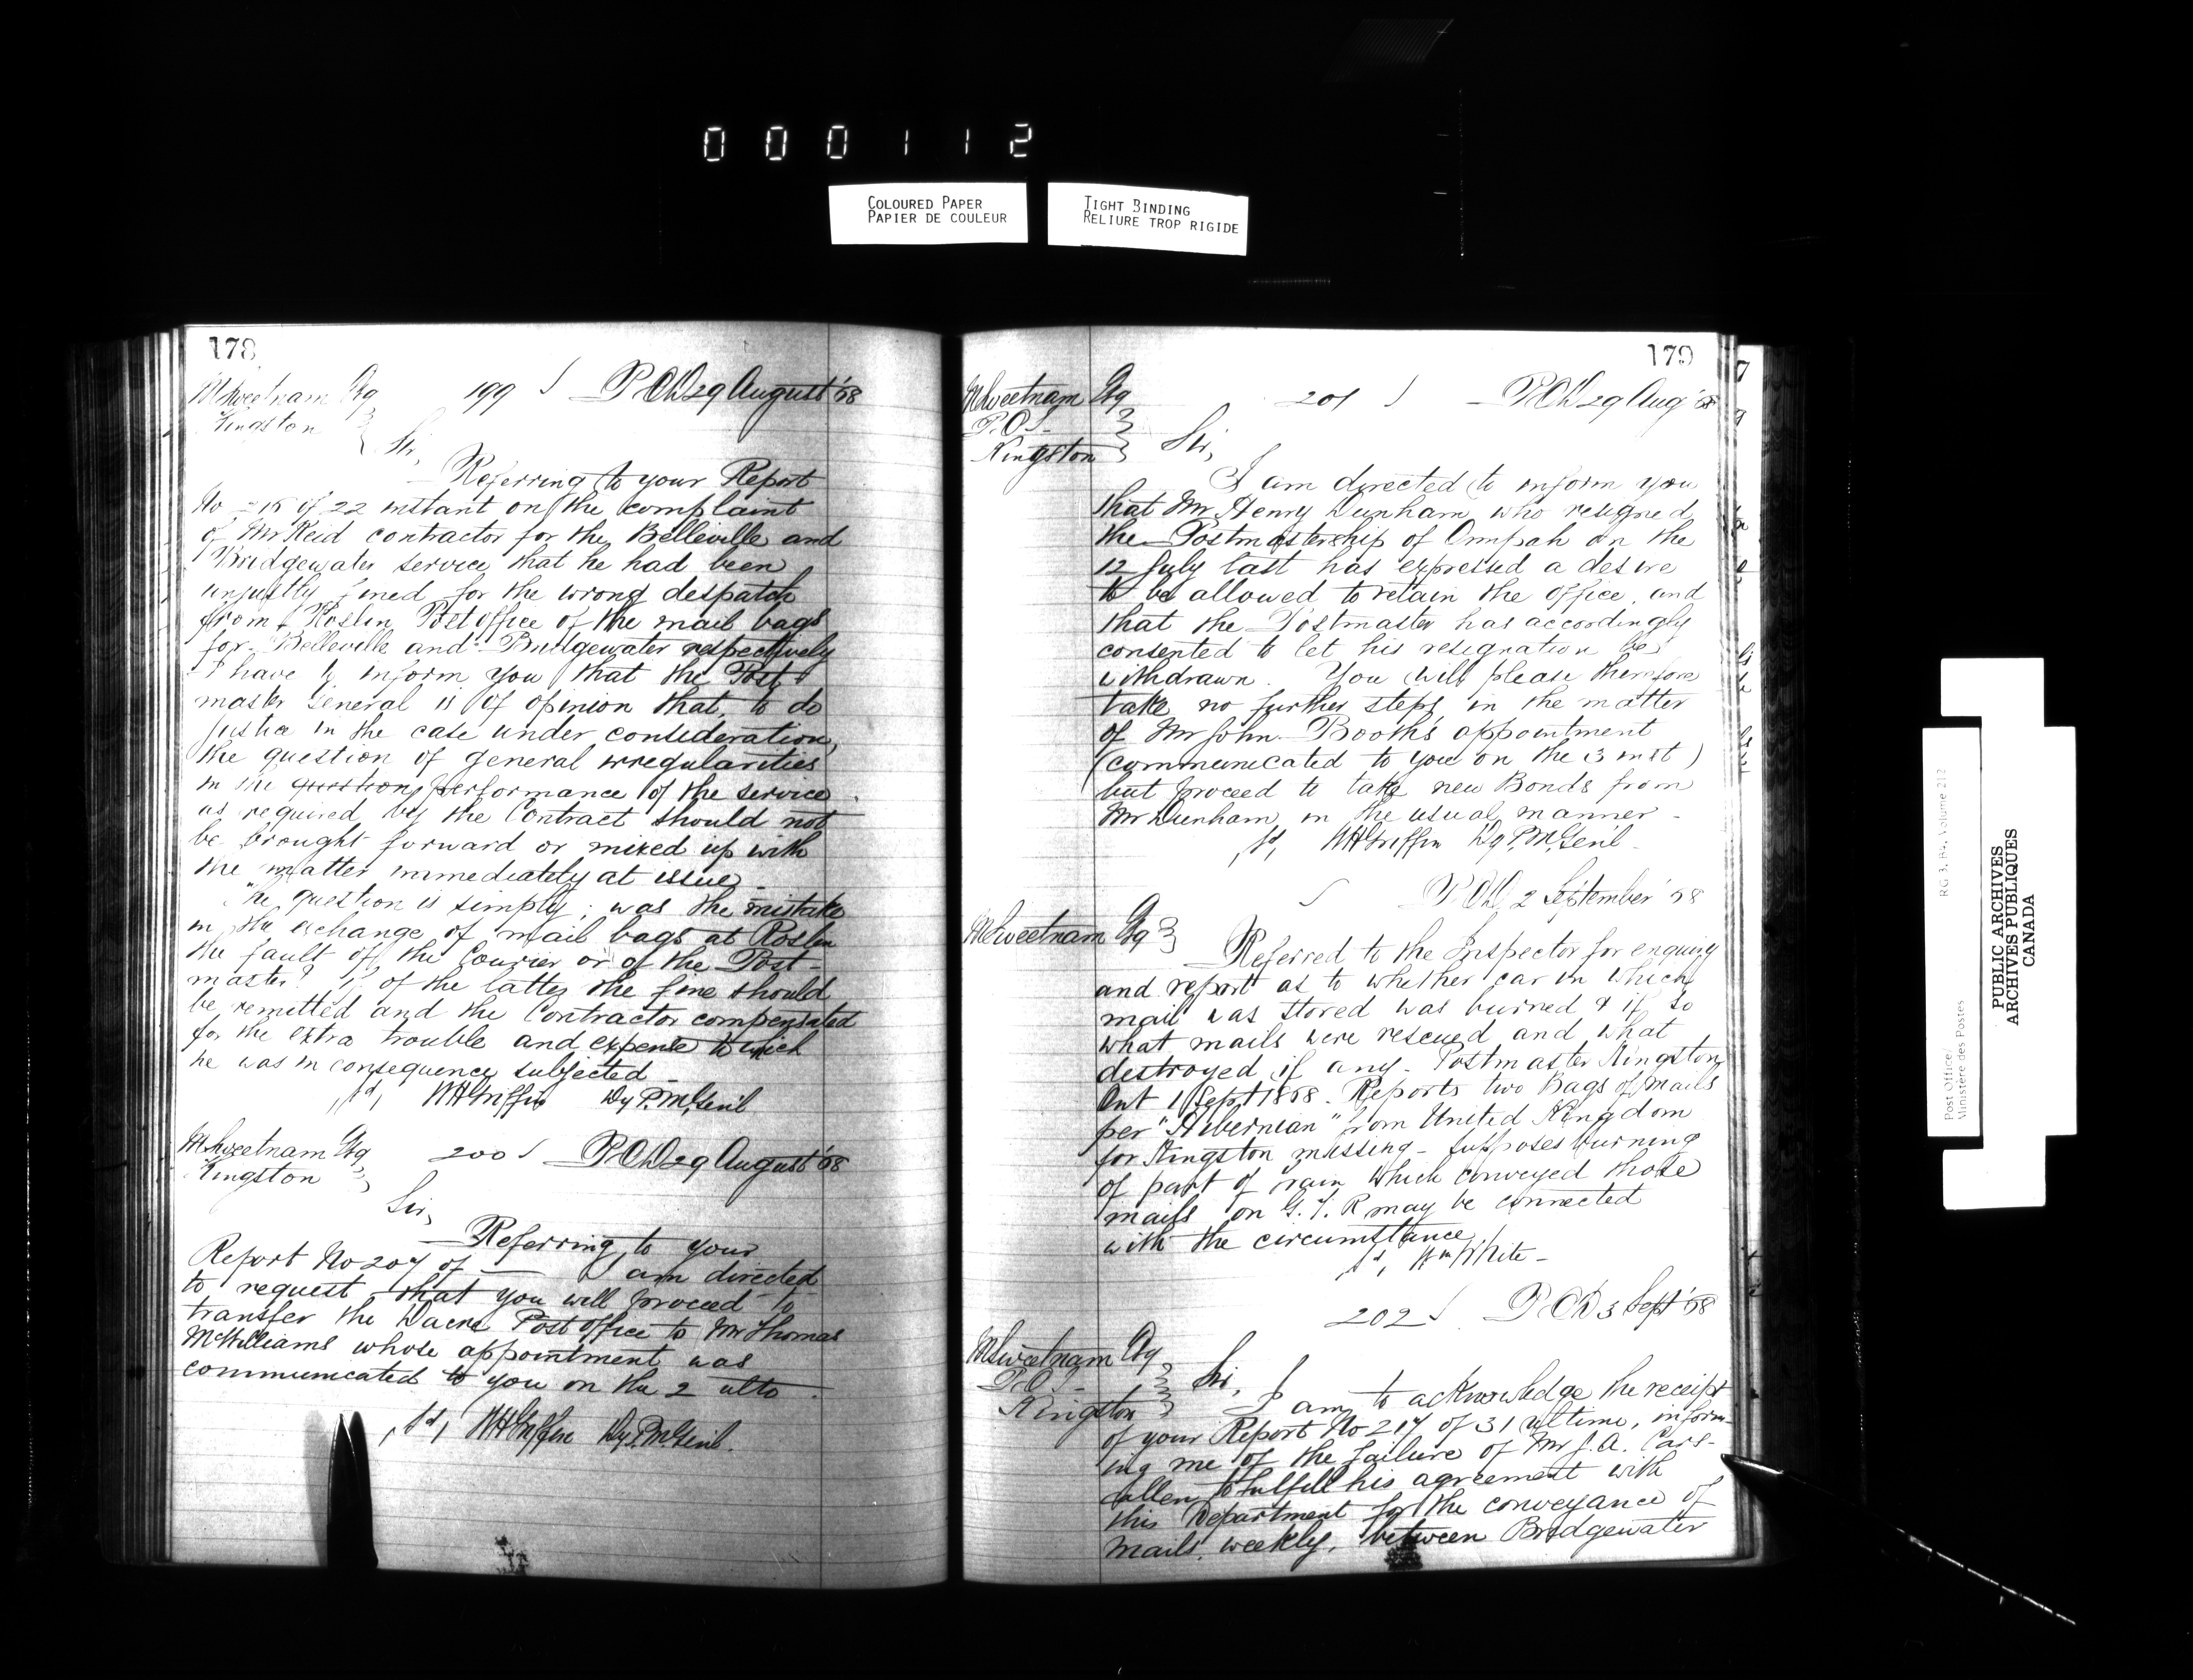 000112
COLOURED PAPER
PAPIER DE COULEUR
TIGHT BINDING
RELIURE TROP RIGIDE
178
MSweetnam Esq
Kingston
199 P.O.D 29 August '68
Sir,
Referring to your Report
No 215 of 22 instant on the complaint
of Mr Reid contractor for the Belleville and
Bridgewater service that he had been
unjustly fined for the wrong despatch
from Roslin Post office of the mail bags
for Belleville and Bridgewater respectively
I have to inform you that the Post
master General is of opinion that, to do
justice in the case under consideration,
the question of general irregularities
in the question performance of the service
as required by the Contract should not
be brought forward or mixed up with
the matter immediately at issue
The question is simply; was the mistake
in the exchange of mail bags at Roslin
the fault of the Courier or of the Post-
master? If of the latter the fine should
be remitted and the Contractor compensated
for the extra trouble and expense to which
he was in consequence subjected
sd, WHGriffin Dy P.M.Genl
MSweetnam Esq
Kingston
200 P.O.D 29 August '68
Sir,
Referring to your
Report No 207 of — I am directed
to request that you will proceed to
transfer the Dacre Post office to Mr Thomas
McWilliams whose appointment was
communicated to you on the 2 ulto.
sd, WHGriffin Dy P.M.Genl.
179
MSweetnam Esq
P.O.I.
Kingston
201 P.O.D 29 Aug '68
Sir,
I am directed to inform you
that Mr Henry Dunham who resigned
the Postmastership of Ompah on the
12 July last has expressed a desire
to be allowed to retain the office, and
that the Postmaster has accordingly
consented to let his resignation be
withdrawn. You will please therefore
take no further steps in the matter
of Mr John Booth's appointment
(communicated to you on the 3 inst)
but proceed to take new Bonds from
Mr Dunham in the usual manner -
sd, WHGriffin Dy P.M.Genl -
P.O.D. 2 September '68
MSweetnam Esq
Referred to the Inspector for enquiry
and report as to whether car in which
mail was stored was burned & if so
what mails were rescued and what
destroyed if any. Postmaster Kingston
Ont 1 Sept 1868. Reports two Bags of mails
per "Hibernian" from United Kingdom
for Kingston missing - supposes burning
of part of train which conveyed those
mails on G.T.R may be connected
with the circumstance
sd, Wm White -
202 P.O.D 3 Sept '68
MSweetnam Esq
P.O.I.
Kingston
Sir, I am to acknowledge the receipt
of your Report No 217 of 31 ultimo, inform-
ing me of the failure of Mr J.A. Cars-
callen to fulfill his agreement with
this Department for the conveyance of
mails, weekly, between Bridgewater
Post Office/
Ministère des Postes
RG 3, B4, Volume 212
PUBLIC ARCHIVES
ARCHIVES PUBLIQUES
CANADA